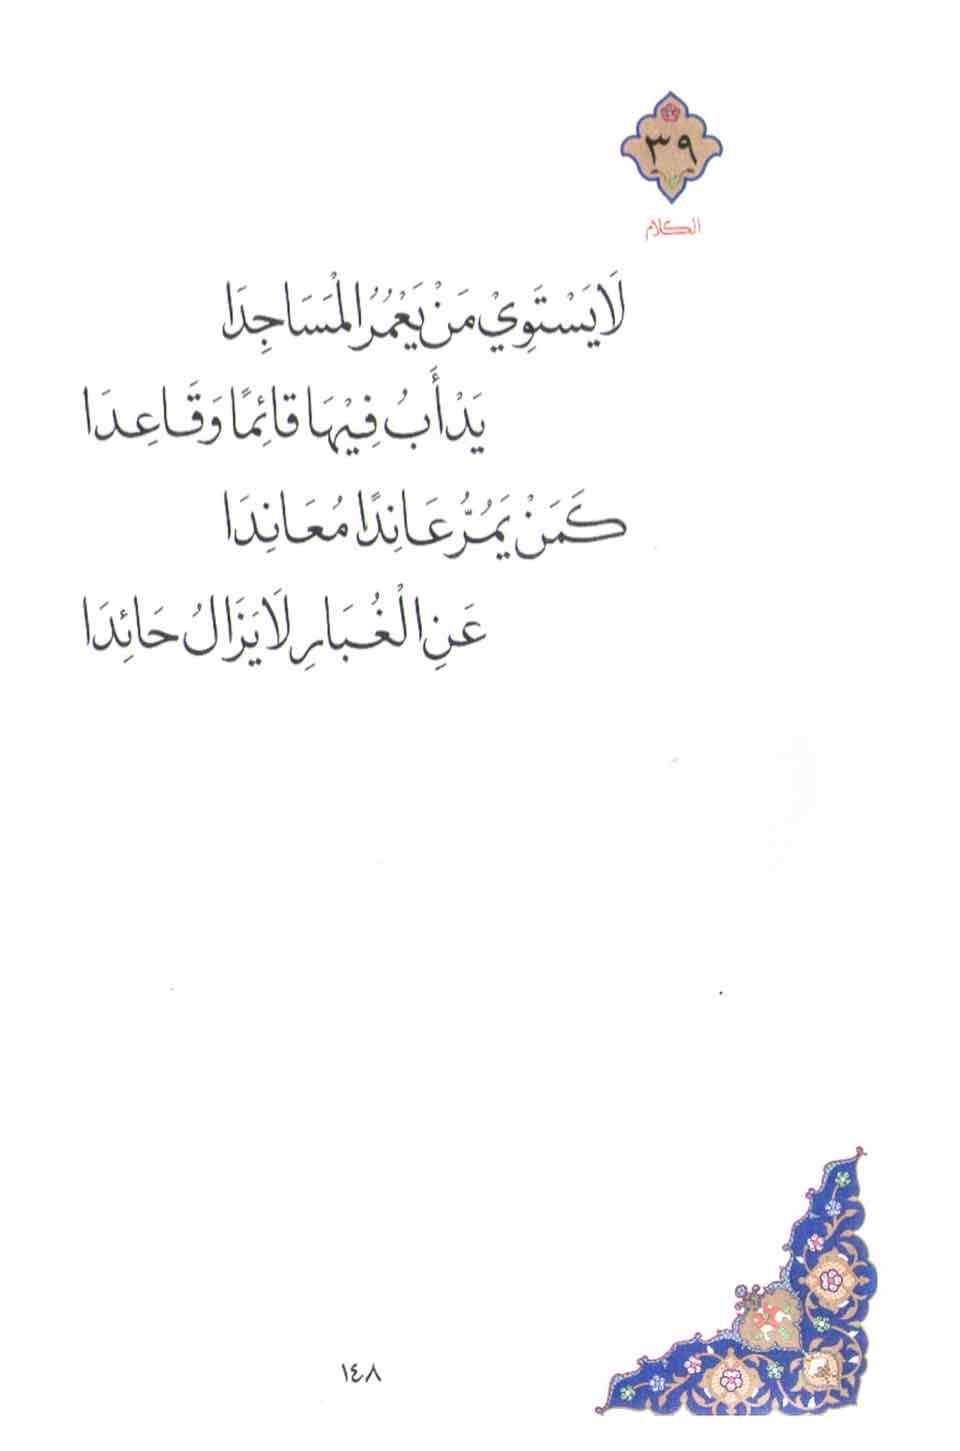 ٣٩
الكلام
لَا يَسْتَوِيْ مَنْ يَعْمُرُ الْمَسَاجِدَا
يَدْأَبُ فِيْهَا قَائِمًا وَقَاعِدَا
كَمَنْ يَمُرُّ عَانِدًا مُعَانِدَا
عَنِ الْغُبَارِ لَا يَزَالُ حَائِدَا
١٤٨